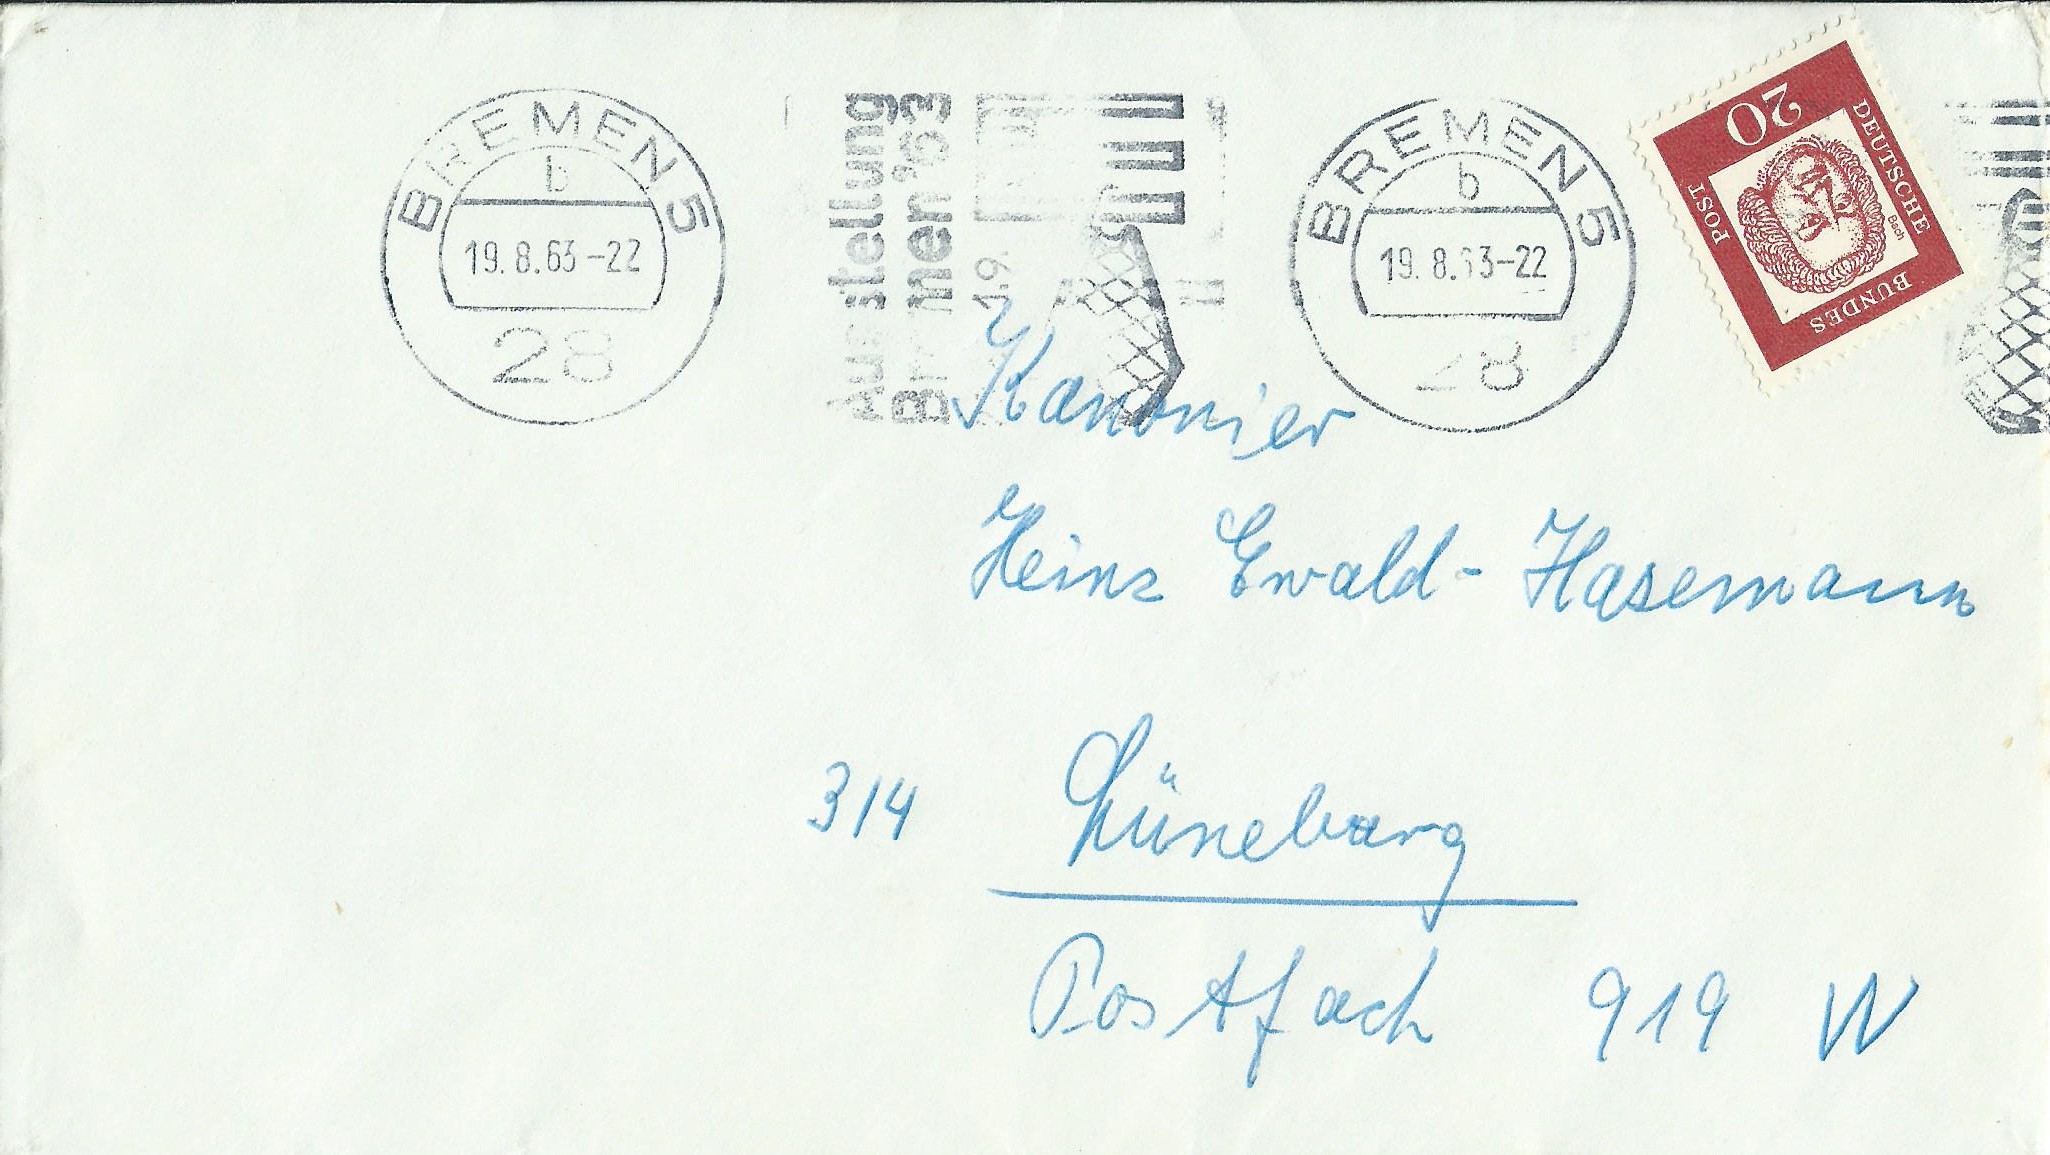 BREMEN 5
b
19.8.63-22
28
Ausstellung
Bremen '63
19.
BREMEN 5
b
19.8.63-22
28
20
DEUTSCHE
BUNDES
POST
Bach
Kanonier
Heinz Ewald-Hasemann
314 Lüneburg
Postfach 919 W